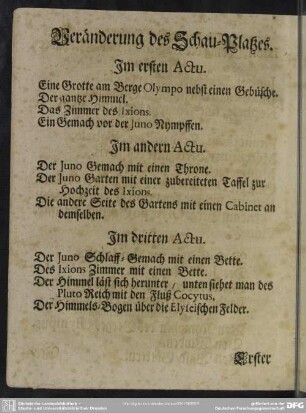 Veränderung des Schau-Platzes.
Im ersten Actu.
Eine Grotte am Berge Olympo nebst einen Gebüsche.
Der gantze Himmel.
Das Zimmer des Ixions.
Ein Gemach vor der Juno Nympffen.
Im andern Actu.
Der Juno Gemach mit einen Throne.
Der Juno Garten mit einer zubereiteten Taffel zur
Hochzeit des Ixions.
Die andere Seite des Gartens mit einen Cabinet an
demselben.
Im dritten Actu.
Der Juno Schlaff-Gemach mit einen Bette.
Des Ixions Zimmer mit einen Bette.
Der Himmel läst sich herunter / unten siehet man des
Pluto Reich mit den Fluß Cocytus.
Der Himmels-Bogen über die Elyseischen Felder.
Erster
DFG